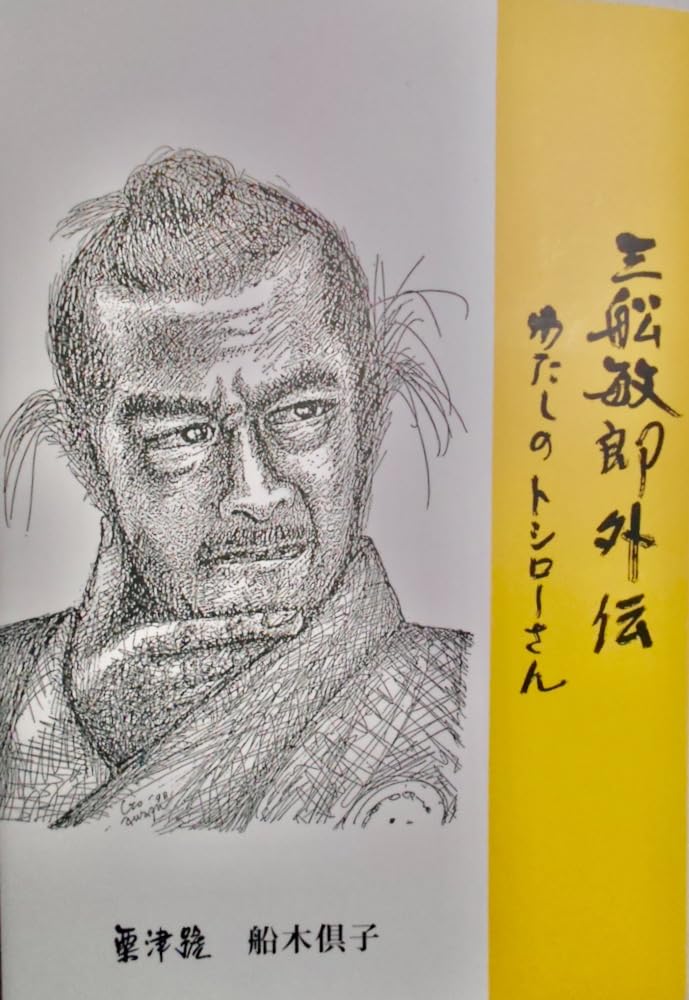 三船敏郎外伝
わたしのトシローさん
Go '98
Awazu
粟津號 船木倶子